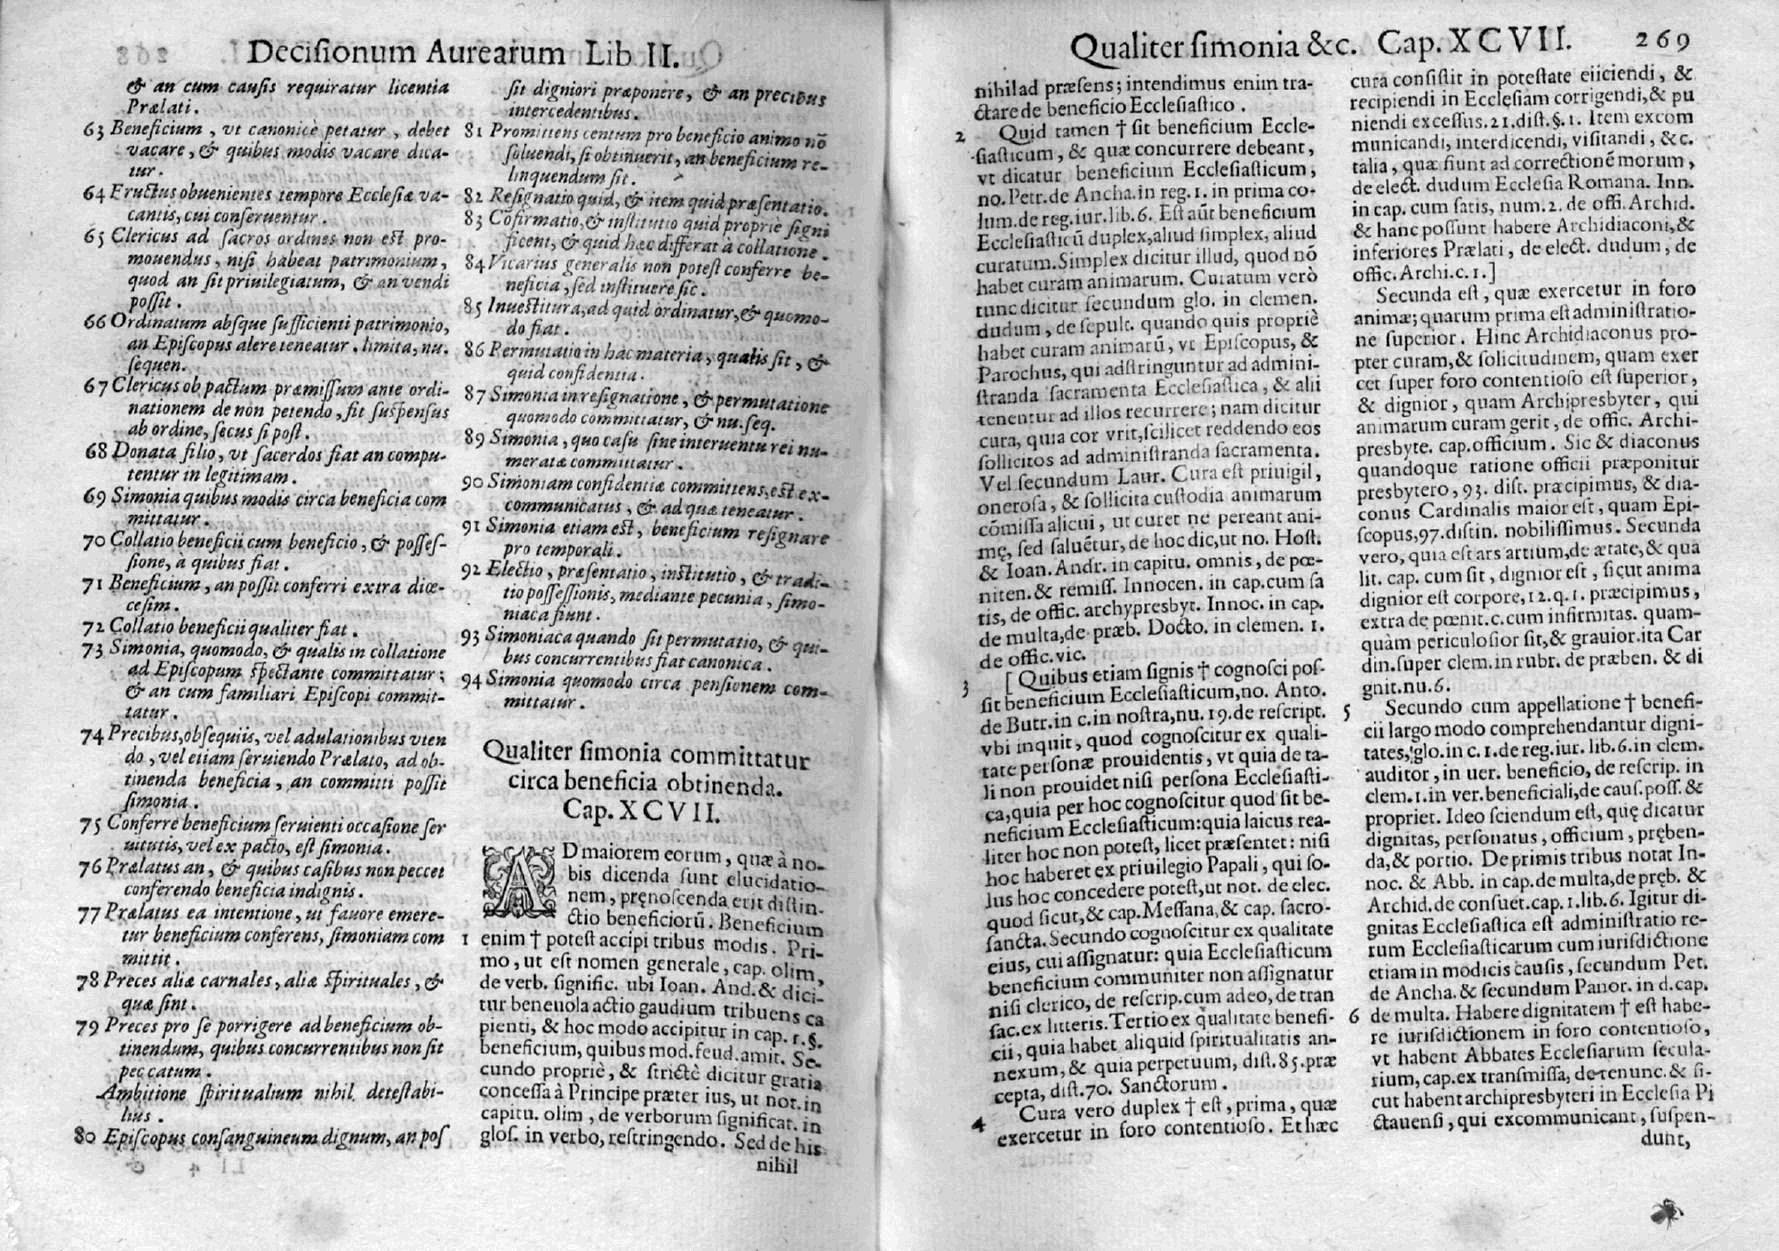 Decisionum Aurearum Lib II.
& an cum causis requiratur licentia
Prælati.
63 Beneficium, vt canonicè petatur, debet
vacare, & quibus modis vacare dica-
tur.
64 Fructus obuenientes tempore Ecclesiæ va-
cantis, cui conseruentur.
65 Clericus ad sacros ordines non est pro-
mouendus, nisi habeat patrimonium,
quod an sit priuilegiatum, & an vendi
possit.
66 Ordinatum absque sufficienti patrimonio,
an Episcopus alere teneatur. limita, nu.
sequen.
67 Clericus ob pactum præmissum ante ordi-
nationem de non petendo, sit suspensus
ab ordine, secus si post.
68 Donata filio, vt sacerdos fiat an compu-
tentur in legitimam.
69 Simonia quibus modis circa beneficia com
mittatur.
70 Collatio beneficii cum beneficio, & posses-
sione, à quibus fiat.
71 Beneficium, an possit conferri extra diœ-
cesim.
72 Collatio beneficii qualiter fiat.
73 Simonia, quomodo, & qualis in collatione
ad Episcopum spectante committatur;
& an cum familiari Episcopi commit-
tatur.
74 Precibus, obsequiis, vel adulationibus vten
do, vel etiam seruiendo Prælato, ad ob-
tinenda beneficia, an committi possit
simonia.
75 Conferre beneficium seruienti occasione ser
uitutis, vel ex pacto, est simonia.
76 Prælatus an, & quibus casibus non peccet
conferendo beneficia indignis.
77 Prælatus ea intentione, ut fauore emere-
tur beneficium conferens, simoniam com
mittit.
78 Preces aliæ carnales, aliæ spirituales, &
quæ sint.
79 Preces pro se porrigere ad beneficium ob-
tinendum, quibus concurrentibus non sit
peccatum.
Ambitione spiritualium nihil detestabi-
lius.
80 Episcopus consanguineum dignum, an pos
sit digniori præponere, & an precibus
intercedentibus.
81 Promittens centum pro beneficio animo nō
soluendi, si obtinuerit, an beneficium re-
linquendum sit.
82 Resignatio quid, & item quid præsentatio.
83 Cōfirmatio, & institutio quid propriè signi
ficent, & quid hæc differat à collatione.
84 Vicarius generalis non potest conferre be-
neficia, sed instituere sic.
85 Inuestitura, ad quid ordinatur, & quomo-
do fiat.
86 Permutatio in hac materia, qualis sit, &
quid confidentia.
87 Simonia in resignatione, & permutatione
quomodo committatur, & nu. seq.
89 Simonia, quo casu sine interuentu rei nu-
meratæ committatur.
90 Simoniam confidentiæ committens, est ex-
communicatus, & ad quæ teneatur.
91 Simonia etiam est, beneficium resignare
pro temporali.
92 Electio, præsentatio, institutio, & tradi-
tio possessionis, mediante pecunia, simo-
niaca fiunt.
93 Simoniaca quando sit permutatio, & qui-
bus concurrentibus fiat canonica.
94 Simonia quomodo circa pensionem com-
mittatur.
Qualiter simonia committatur
circa beneficia obtinenda.
Cap. XCVII.
AD maiorem eorum, quæ à no-
bis dicenda sunt elucidatio-
nem, pręnoscenda erit distin-
ctio beneficiorū. Beneficium
1 enim † potest accipi tribus modis. Pri-
mo, ut est nomen generale, cap. olim,
de verb. signific. ubi Ioan. And. & dici-
tur beneuola actio gaudium tribuens ca
pienti, & hoc modo accipitur in cap. 1. §.
beneficium, quibus mod. feud. amit. Se-
cundo propriè, & strictè dicitur gratia
concessa à Principe præter ius, ut not. in
capitu. olim, de verborum significat. in
glos. in verbo, restringendo. Sed de his
nihil
Qualiter simonia &c. Cap. XCVII. 269
nihil ad præsens; intendimus enim tra-
ctare de beneficio Ecclesiastico.
2 Quid tamen † sit beneficium Eccle-
siasticum, & quæ concurrere debeant,
vt dicatur beneficium Ecclesiasticum,
no. Petr. de Ancha. in reg. 1. in prima co-
lum. de reg. iur. lib. 6. Est aūt beneficium
Ecclesiasticū duplex, aliud simplex, aliud
curatum. Simplex dicitur illud, quod nō
habet curam animarum. Curatum verò
tunc dicitur secundum glo. in clemen.
dudum, de sepult. quando quis propriè
habet curam animarū, vt Episcopus, &
Parochus, qui adstringuntur ad admini-
stranda sacramenta Ecclesiastica, & alii
tenentur ad illos recurrere; nam dicitur
cura, quia cor vrit, scilicet reddendo eos
sollicitos ad administranda sacramenta.
Vel secundum Laur. Cura est priuigil,
onerosa, & sollicita custodia animarum
cōmissa alicui, ut curet ne pereant ani-
mę, sed saluētur, de hoc dic, ut no. Host.
& Ioan. Andr. in capitu. omnis, de pœ-
niten. & remiss. Innocen. in cap. cum sa
tis, de offic. archypresbyt. Innoc. in cap.
de multa, de præb. Docto. in clemen. 1.
de offic. vic.
3 [Quibus etiam signis † cognosci pos-
sit beneficium Ecclesiasticum, no. Anto.
de Butr. in c. in nostra, nu. 19. de rescript.
vbi inquit, quod cognoscitur ex quali-
tate personæ prouidentis, vt quia de ta-
li non prouidet nisi persona Ecclesiasti-
ca, quia per hoc cognoscitur quod sit be-
neficium Ecclesiasticum: quia laicus rea-
liter hoc non potest, licet præsentet: nisi
hoc haberet ex priuilegio Papali, qui so-
lus hoc concedere potest, ut not. de elec.
quod sicut, & cap. Messana, & cap. sacro-
sancta. Secundo cognoscitur ex qualitate
eius, cui assignatur: quia Ecclesiasticum
beneficium communiter non assignatur
nisi clerico, de rescrip. cum adeo, de tran
sac. ex litteris. Tertio ex qualitate benefi-
cii, quia habet aliquid spiritualitatis an-
nexum, & quia perpetuum, dist. 85. præ
cepta, dist. 70. Sanctorum.
4 Cura vero duplex † est, prima, quæ
exercetur in foro contentioso. Et hæc
cura consistit in potestate eiiciendi, &
recipiendi in Ecclesiam corrigendi, & pu
niendi excessus. 21. dist. §. 1. Item excom
municandi, interdicendi, visitandi, &c.
talia, quæ fiunt ad correctionē morum,
de elect. dudum Ecclesia Romana. Inn.
in cap. cum satis, num. 2. de offi. Archid.
& hanc possunt habere Archidiaconi, &
inferiores Prælati, de elect. dudum, de
offic. Archi. c. 1.]
Secunda est, quæ exercetur in foro
animæ; quarum prima est administratio-
ne superior. Hinc Archidiaconus pro-
pter curam, & solicitudinem, quam exer
cet super foro contentioso est superior,
& dignior, quam Archipresbyter, qui
animarum curam gerit, de offic. Archi-
presbyte. cap. officium. Sic & diaconus
quandoque ratione officii præponitur
presbytero, 93. dist. præcipimus, & dia-
conus Cardinalis maior est, quam Epi-
scopus, 97. distin. nobilissimus. Secunda
vero, quia est ars artium, de ætate, & qua
lit. cap. cum sit, dignior est, sicut anima
dignior est corpore, 12. q. 1. præcipimus,
extra de pœnit. c. cum infirmitas. quam-
quàm periculosior sit, & grauior. ita Car
din. super clem. in rubr. de præben. & di
gnit. nu. 6.
5 Secundo cum appellatione † benefi-
cii largo modo comprehendantur digni-
tates, glo. in c. 1. de reg. iur. lib. 6. in clem.
auditor, in uer. beneficio, de rescrip. in
clem. 1. in ver. beneficiali, de caus. poss. &
propriet. Ideo sciendum est, quę dicatur
dignitas, personatus, officium, pręben-
da, & portio. De primis tribus notat In-
noc. & Abb. in cap. de multa, de pręb. &
Archid. de consuet. cap. 1. lib. 6. Igitur di-
gnitas Ecclesiastica est administratio re-
rum Ecclesiasticarum cum iurisdictione
etiam in modicis causis, secundum Pet.
de Ancha. & secundum Panor. in d. cap.
6 de multa. Habere dignitatem † est habe-
re iurisdictionem in foro contentioso,
vt habent Abbates Ecclesiarum secula-
rium, cap. ex transmissa, de renunc. & si-
cut habent archipresbyteri in Ecclesia Pi
ctauensi, qui excommunicant, suspen-
dunt,